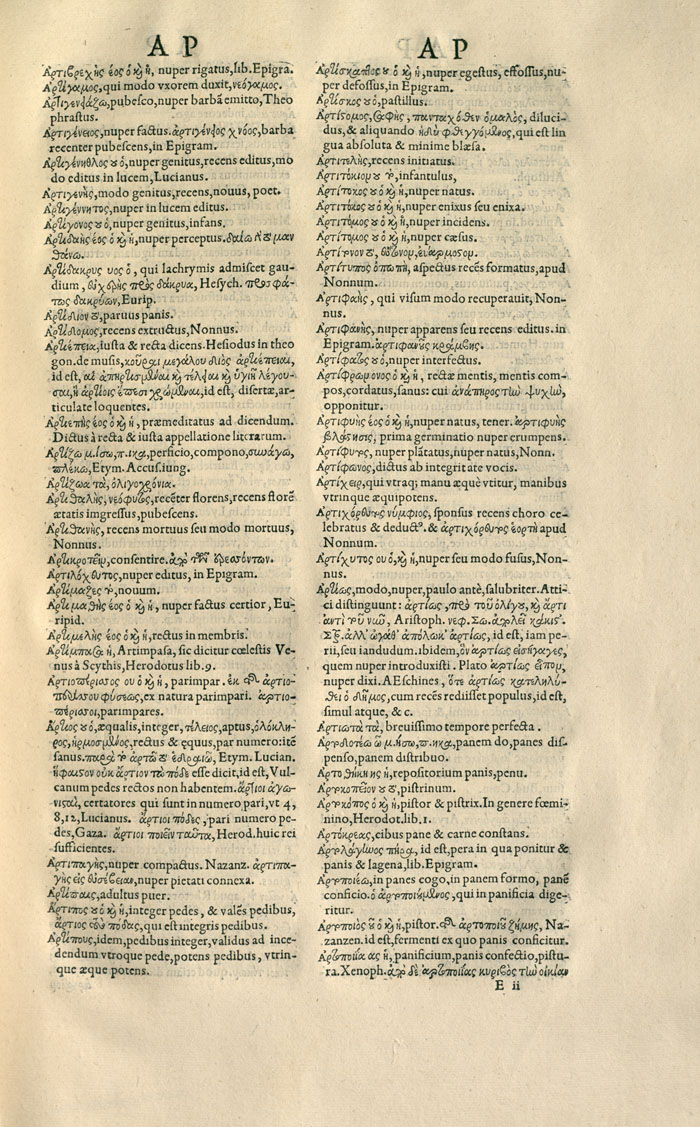 A P
Αρτιβρεχὴς έος ὁ κỳ ἡ, nuper rigatus, lib. Epigra.
Αρτίγαμος, qui modo vxorem duxit, νεόγαμος.
Αρτιγενειάζω, pubesco, nuper barbā emitto, Theo
phrastus.
Αρτιγένειος, nuper factus. ἀρτιγένειος χνόος, barba
recenter pubescens, in Epigram.
Αρτιγένηθλος ȣ ὁ, nuper genitus, recens editus, mo
do editus in lucem, Lucianus.
Αρτιγενὴς, modo genitus, recens, nouus, poet.
Αρτιγέννητος, nuper in lucem editus.
Αρτίγονος ȣ ὁ, nuper genitus, infans.
Αρτιδαὴς έος ὁ κỳ ἡ, nuper perceptus. μαν
θάνω.
Αρτίδακρυς υος ὁ, qui lachrymis admiscet gau-
dium, πρὸς δάκρυα, Hesych. προσφά-
τως δακρύων, Eurip.
Αρτίδιον, paruus panis.
Αρτίδομος, recens extructus, Nonnus.
Αρτιέπεια, iusta & recta dicens. Hesiodus in theo
gon. de musis, κοῦραι μεγάλου διὸς ἀρτιέπειαι,
id est, αἱ ἀπηρτισμέναι κỳ τέλειαι κỳ ὑγιῆ λέγου-
σαι, ἢ ἀρτίοις ἔπεσι χρώμεναι, id est, disertæ, ar-
ticulate loquentes.
Αρτιεπὴς έος ὁ κỳ ἡ, præmeditatus ad dicendum.
Dictus à recta & iusta appellatione literarum.
Αρτίζω μ. ίσω, π. ικα, perficio, compono, συνάγω,
πλέκω, Etym. Accus. iung.
Αρτίζωα τὰ, ὀλιγοχρόνια.
Αρτιθαλὴς, νεόφυτος, recēter florens, recens florē
ætatis ingressus, pubescens.
Αρτιθανὴς, recens mortuus seu modo mortuus,
Nonnus.
Αρτικροτεῖν, consentire.
Αρτιλόχευτος, nuper editus, in Epigram.
Αρτίμαζες, nouum.
Αρτιμαθὴς έος ὁ κỳ ἡ, nuper factus certior, Eu-
ripid.
Αρτιμελὴς έος ὁ κỳ ἡ, rectus in membris.
Artimpasa, sic dicitur cœlestis Ve-
nus à Scythis, Herodotus lib. 9.
Αρτιοπέριασος ου ὁ κỳ ἡ, parimpar. ἐκ ἀρτιο-
φύσεως, ex natura parimpari. ἀρτιο-
πέριασοι, parimpares.
Αρτιος ȣ ὁ, æqualis, integer, τέλειος, aptus, ὁλόκλη-
ρος, ἡρμοσμένος, rectus & equus, par numero: itē
sanus. Etym. Lucian.
ἥφαιστον οὐκ ἄρτιον τὼ πόδε esse dicit, id est, Vul-
canum pedes rectos non habentem. ἄρτιοι ἀγω-
νισταὶ, certatores qui sunt in numero pari, vt 4,
8, 12, Lucianus. ἄρτιοι πόδες, pari numero pe-
des, Gaza. ἄρτιοι ποιεῖν ταῦτα, Herod. huic rei
sufficientes.
Αρτιπαγὴς, nuper compactus. Nazanz. ἀρτιπα-
γὴς εἰς εὐσέβειαν, nuper pietati connexa.
Αρτίπαις, adultus puer.
Αρτιπος ȣ ὁ κỳ ἡ, integer pedes, & valēs pedibus,
ἄρτιος πόδας, qui est integris pedibus.
Αρτίπους, idem, pedibus integer, validus ad ince-
dendum vtroque pede, potens pedibus, vtrin-
que æque potens.
A P
Αρτίσκαπτος ȣ ὁ κỳ ἡ, nuper egestus, effossus, nu-
per defossus, in Epigram.
Αρτίσκος ȣ ὁ, pastillus.
Αρτίστομος, σαφὴς, πανταχόθεν ὁμαλὸς, diluci-
dus, & aliquando ἡδὺ φθεγγόμενος, qui est lin
gua absoluta & minime blæsa.
Αρτιτελὴς, recens initiatus.
Αρτιτόκιον, infantulus,
Αρτίτοκος ȣ ὁ κỳ ἡ, nuper natus.
Αρτιτόκος ȣ ὁ κỳ ἡ, nuper enixus seu enixa.
Αρτιτόμος ȣ ὁ κỳ ἡ, nuper incidens.
Αρτίτομος ȣ ὁ κỳ ἡ, nuper cæsus.
Αρτίτυπος ὀπωπὴ, aspectus recēs formatus, apud
Nonnum.
Αρτιφαὴς, qui visum modo recuperauit, Non-
nus.
Αρτιφανὴς, nuper apparens seu recens editus. in
Epigram. ἀρτιφανοῦς κράμβης.
Αρτίφατος ȣ ὁ, nuper interfectus.
Αρτίφρων ονος ὁ κỳ ἡ, rectæ mentis, mentis com-
pos, cordatus, sanus: cui ἀνάπηρος τὴν ψυχὴν,
opponitur.
Αρτιφυὴς έος ὁ κỳ ἡ, nuper natus, tener. ἀρτιφυὴς
βλάστησις, prima germinatio nuper crumpens.
Αρτίφυτος, nuper plātatus, nuper natus, Nonn.
Αρτίφωνος, dictus ab integritate vocis.
Αρτίχειρ, qui vtraq; manu æquè vtitur, manibus
vtrinque æquipotens.
Αρτιχόρευτος νύμφιος, sponsus recens choro ce-
lebratus & deduct⁹. & ἀρτιχόρευτος ἑορτὴ apud
Nonnum.
Αρτίχυτος ου ὁ, κỳ ἡ, nuper seu modo fusus, Non-
nus.
Αρτίως, modo, nuper, paulo antè, salubriter. Atti-
ci distinguunt: ἀρτίως, πρὸ τοῦ ὀλίγου, κỳ ἄρτι
ἀντὶ τοῦ νῦν, Aristoph. νεφ. Σω.
ἀλλ' ὠγάθ' ἀπόλωλ' ἀρτίως, id est, iam pe-
rii, seu iandudum. ibidem, ὃν ἀρτίως εἰσήγαγες,
quem nuper introduxisti. Plato ἀρτίως εἶπον,
nuper dixi. AEschines, ὅτε ἀρτίως κατεληλύ-
θει ὁ δῆμος, cum recēs rediisset populus, id est,
simul atque, & c.
Αρτίωτα τὰ, breuissimo tempore perfecta.
Αρτοδοτέω ῶ μ. ήσω, π. ηκα, panem do, panes dis-
penso, panem distribuo.
Αρτοθήκη ης ἡ, repositorium panis, penu.
Αρτοκοπεῖον ȣ, pistrinum.
Αρτοκόπος ὁ κỳ ἡ, pistor & pistrix. In genere fœmi-
nino, Herodot. lib. 1.
Αρτόκρεας, cibus pane & carne constans.
Αρτολάγυνος πήρα, id est, pera in qua ponitur &
panis & lagena, lib. Epigram.
Αρτοποιέω, in panes cogo, in panem formo, panē
conficio. ὁ ἀρτοποιούμενος, qui in panificia dige-
ritur.
Αρτοποιὸς ȣ ὁ κỳ ἡ, pistor. ἀρτοποιοῦ ζύμης, Na-
zanzen. id est, fermenti ex quo panis conficitur.
Αρτοποιία ας ἡ, panificium, panis confectio, pistu-
ra. Xenoph.
E ii